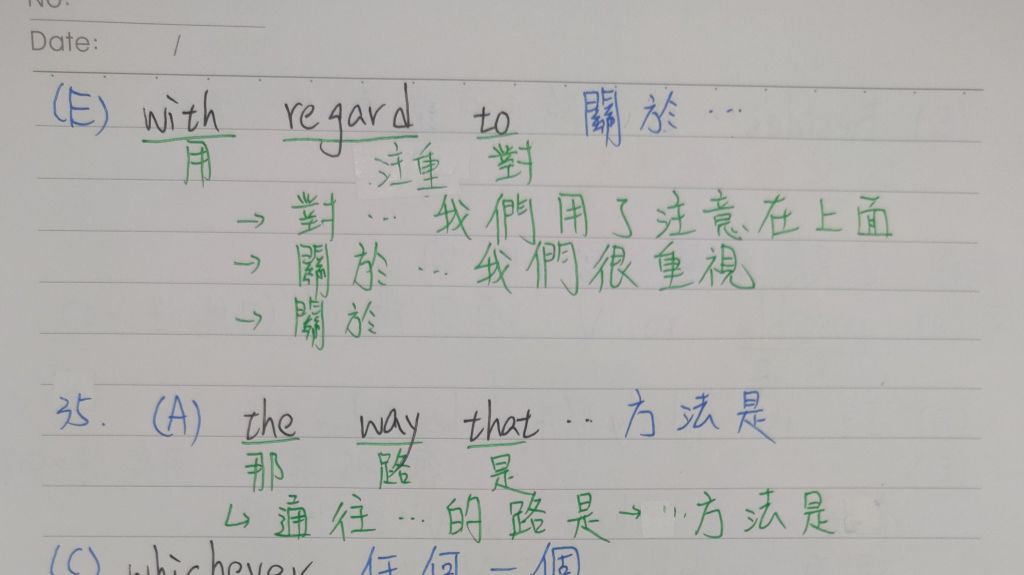 No.
Date: /
(E) with regard to 關於…
用 注重 對
→ 對…我們用了注意在上面
→ 關於…我們很重視
→ 關於
35. (A) the way that … 方法是
那 路 是
↳ 通往…的路是→…方法是
(C) whichever 任何一個